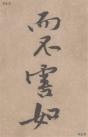 而不害如